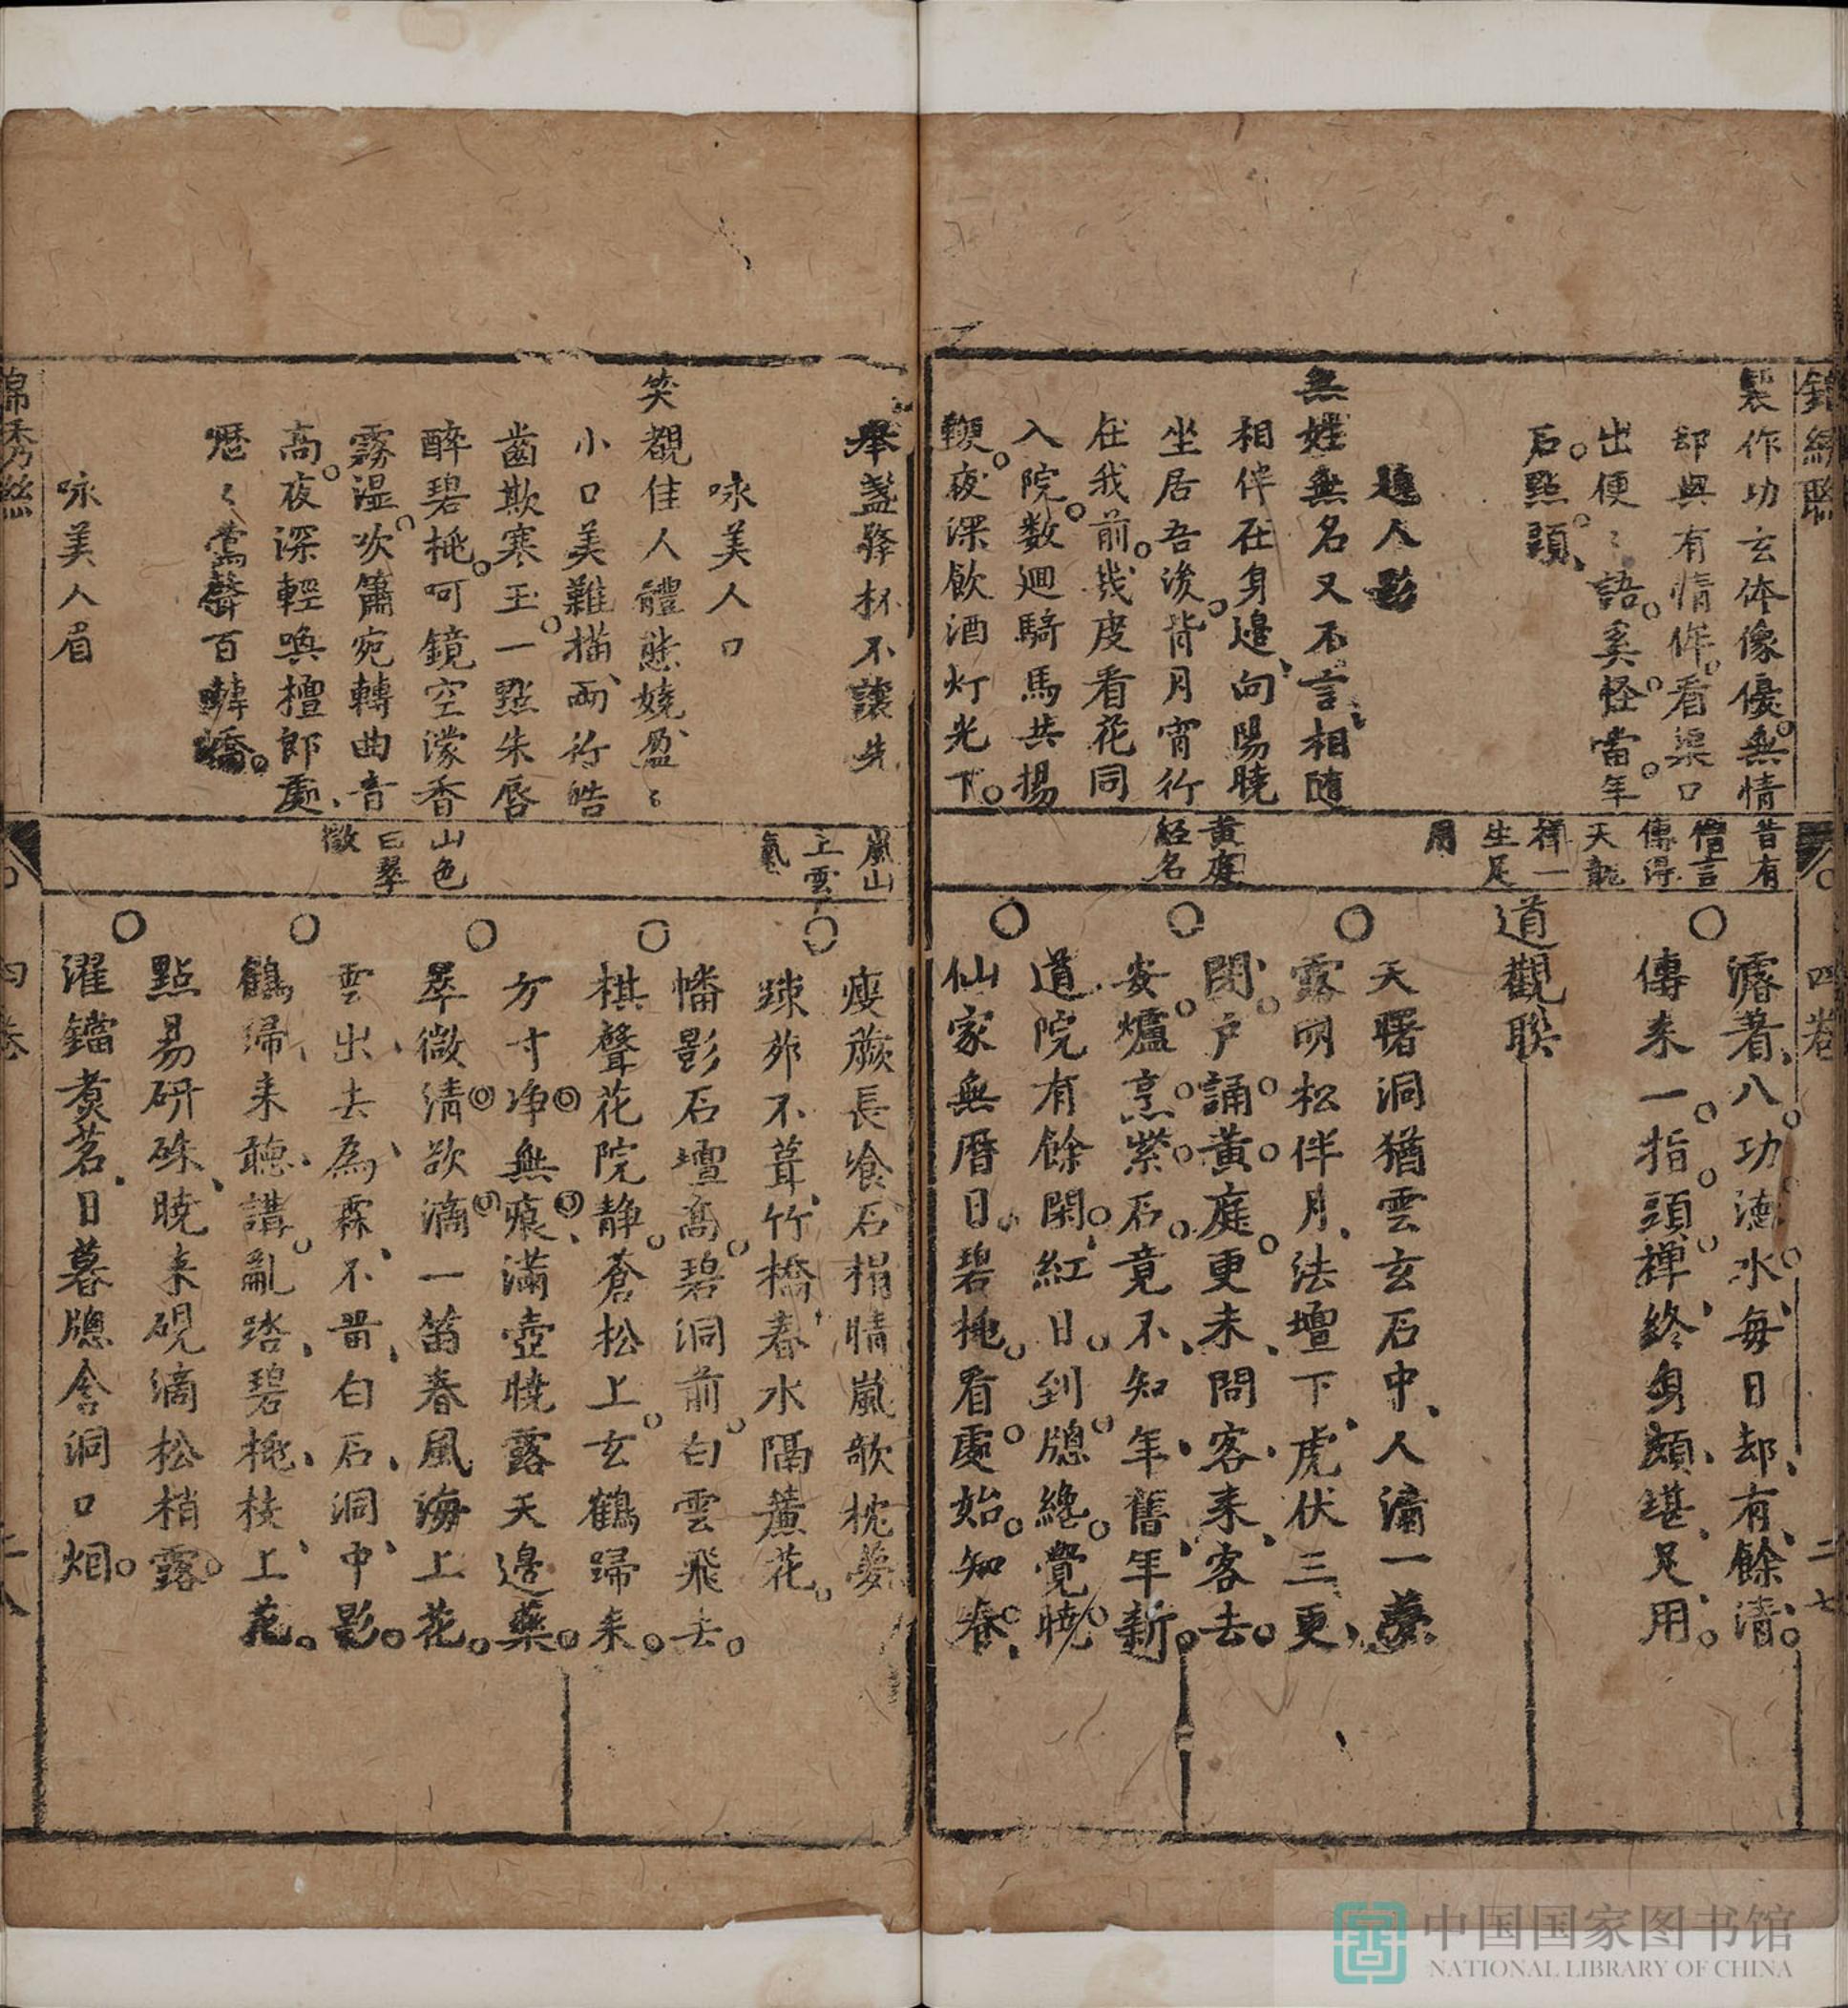 製作功玄体像優無情
却與有情侔看渠口
出便〻語奚怪當年
石點頭
題人影
無姓無名又不言相隨
相伴在身邊向陽曉
坐居吾後背月宵行
在我前幾度看花同
入院数廻騎馬共揚
鞭夜深飲酒灯光下
昔有
僧言
傳得
天龍
禅一
生足
用
黄庭
經名
四巻
二七
濳着八功徳水每日却有餘清
傳来一指頭禅終身頗堪足用
道觀聫
天曙洞猶雲玄石中人濤一夢
露明松伴月法壇下虎伏三更
閉户誦黄庭更未問客来客去
安爐烹紫石竟不知年舊年新
道院有餘閑紅日到牕總覺曉
仙家無曆日碧桃看處始知春
舉盞擎杯不讓先
咏美人口
笑覩佳人體態嬈盈〻
小口美難描兩行皓
齒欺寒玉一點朱唇
醉碧桃呵鏡空濛香
霧湿吹簫宛轉曲音
高夜深輕喚檀郎處
嚦〻鶯聲百囀嬌
咏美人眉
嵐山
上雲
氣
山色
曰翠
微
瘦蕨長飡石榻晴嵐欹枕夢
踈茆不葺竹橋春水隔蘆花
幡影石壇髙碧洞前白雲飛去
棋聲花院静蒼松上玄鶴歸来
方寸净無痕滿壺曉露天邊藥
翠微清欲滴一笛春風海上花
雲出去為霖不畱白石洞中影
鶴歸来聽講亂踏碧桃枝上花
點易研硃曉来硯滴松梢露
濯鐺煑茗日暮牕含洞口烟
錦秀聫
四巻